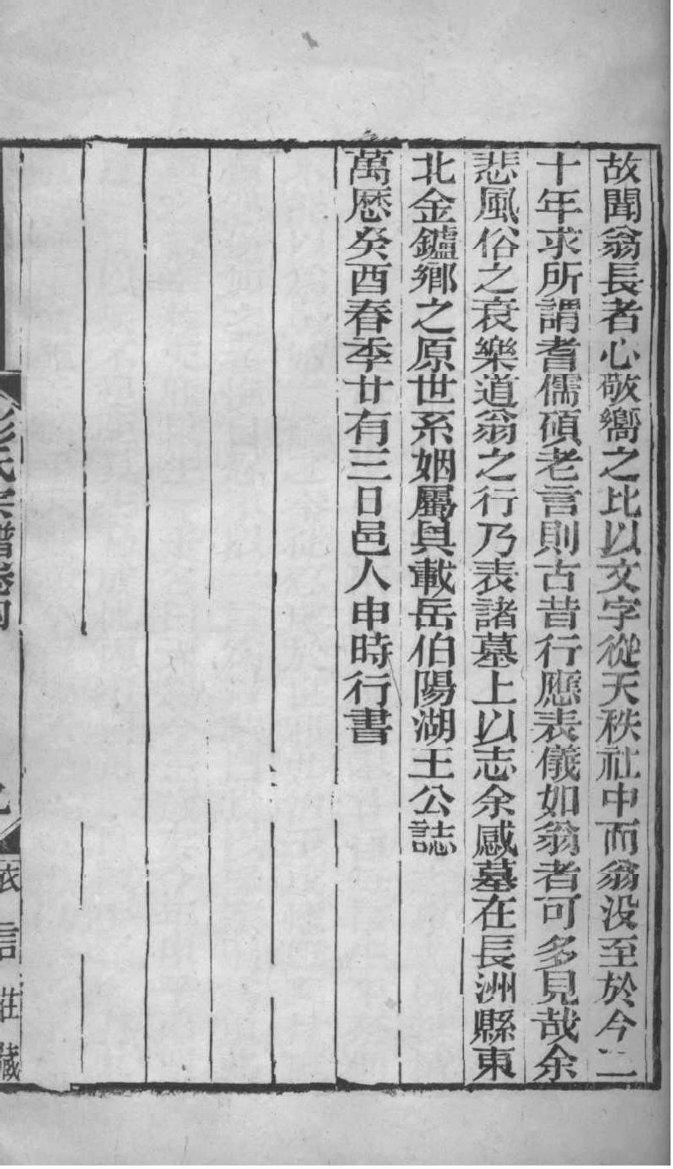 故聞翁長者心敬嚮之比以文字從天秩社中而翁没至於今二
十年求所謂耆儒碩老言則古昔行應表儀如翁者可多見哉余
悲風俗之衰樂道翁之行乃表諸墓上以志余感墓在長洲縣東
北金鑪鄉之原世系姻屬具載岳伯陽湖王公誌
萬厯癸酉春季廿有三日邑人申時行書
彭氏宗譜卷四
衣言莊藏